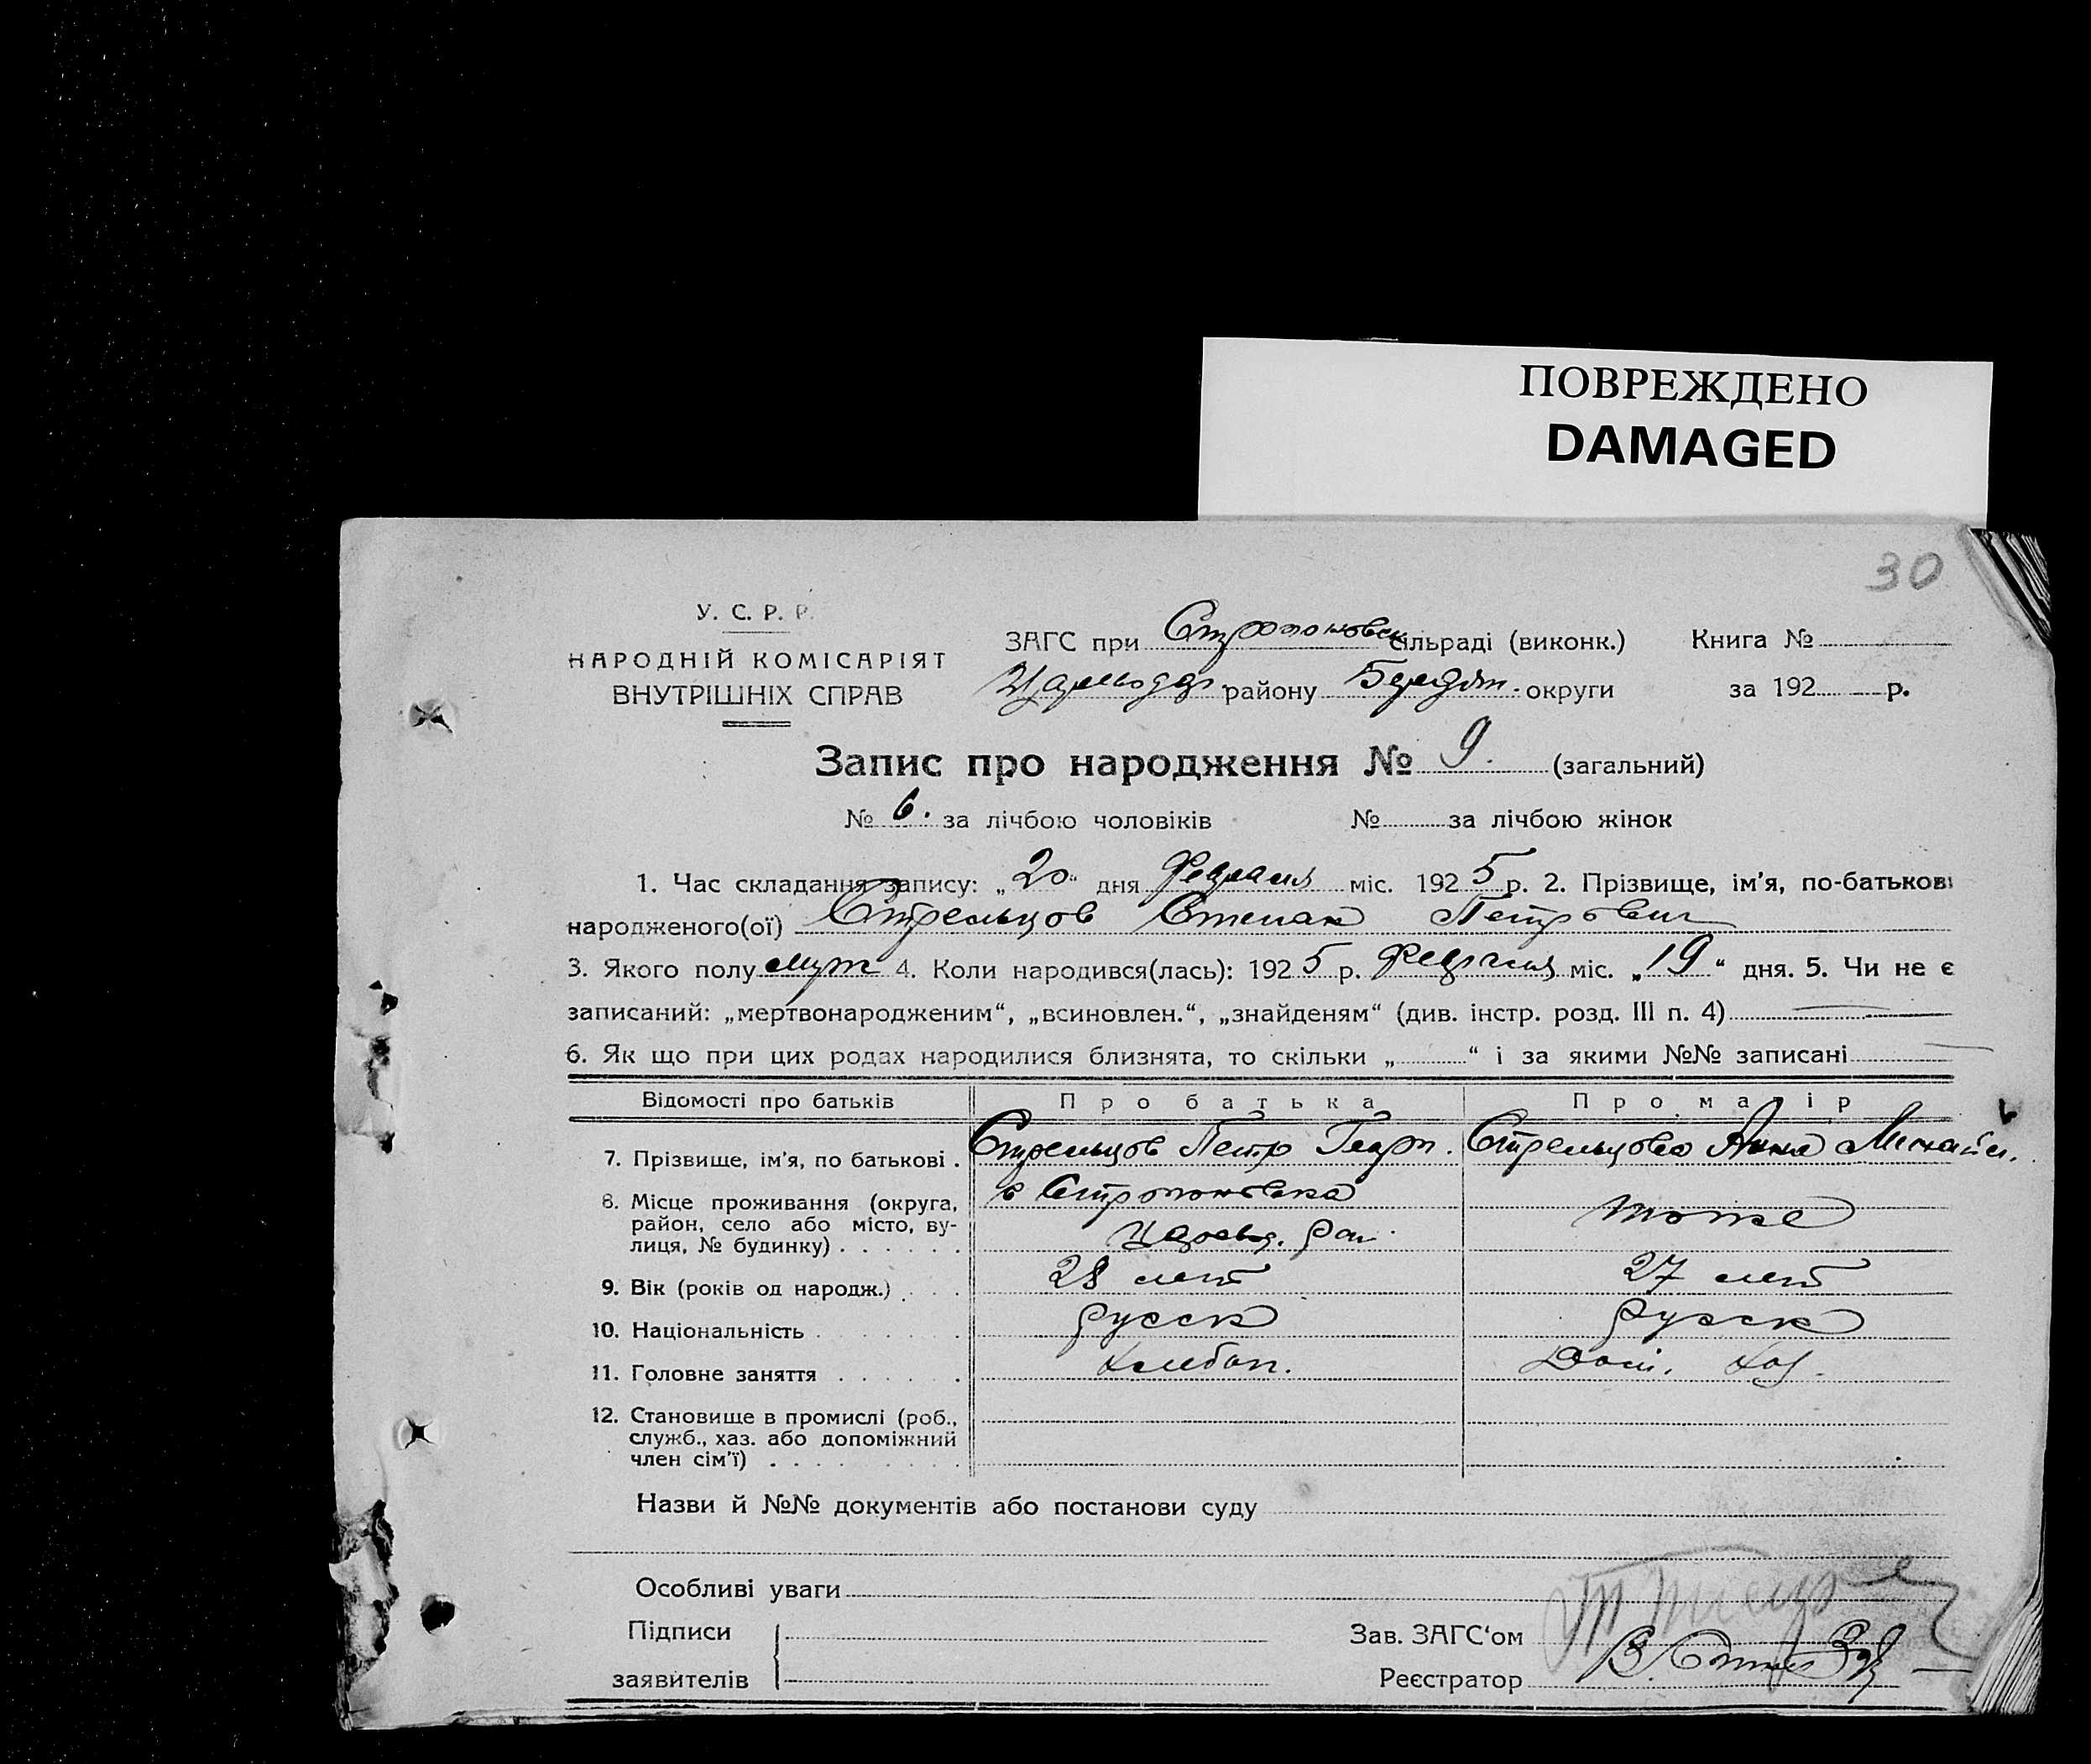 ПОВРЕЖДЕНО
DAMAGED
30
У. С. Р. Р.
НАРОДНІЙ КОМІСАРІЯТ
ВНУТРІШНІХ СПРАВ
ЗАГС при Строгоновск сільраді (виконк.) Книга №
району Бердян. округи за 192 р.
Запис про народження № 9. (загальний)
№ 6. за лічбою чоловіків № за лічбою жінок
1. Час складання запису: „20" дня Февраля міс. 1925 р. 2. Прізвище, ім'я, по-батькові
народженого(ої) Стрельцов Степан Петрович
3. Якого полу муж 4. Коли народився(лась): 1925 р. Февраля міс. „19" дня. 5. Чи не є
записаний: „мертвонародженим", „всиновлен.", „знайденям" (див. інстр. розд. III п. 4)
6. Як що при цих родах народилися близнята, то скільки „ " і за якими №№ записані
Відомості про батьків Про батька Про матір
7. Прізвище, ім'я, по батькові . Стрельцов Петр Георг. Стрельцова Анна Михайл.
8. Місце проживання (округа, район, село або місто, вулиця, № будинку) с Строгоновка
Царевод. рай. тоже
9. Вік (років од народж.) 28 лет 27 лет
10. Національність русск русск
11. Головне заняття Хлебоп. Дом. Хоз.
12. Становище в промислі (роб.,
служб., хаз. або допоміжний
член сім'ї)
Назви й №№ документів або постанови суду
Особливі уваги
Підписи
заявителів
Зав. ЗАГС'ом
Реєстратор